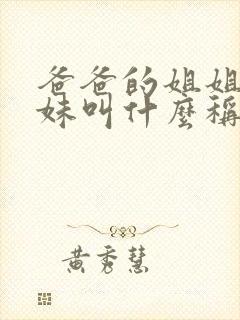 爸爸的姐姐
妹叫什麼稱
黄秀慧